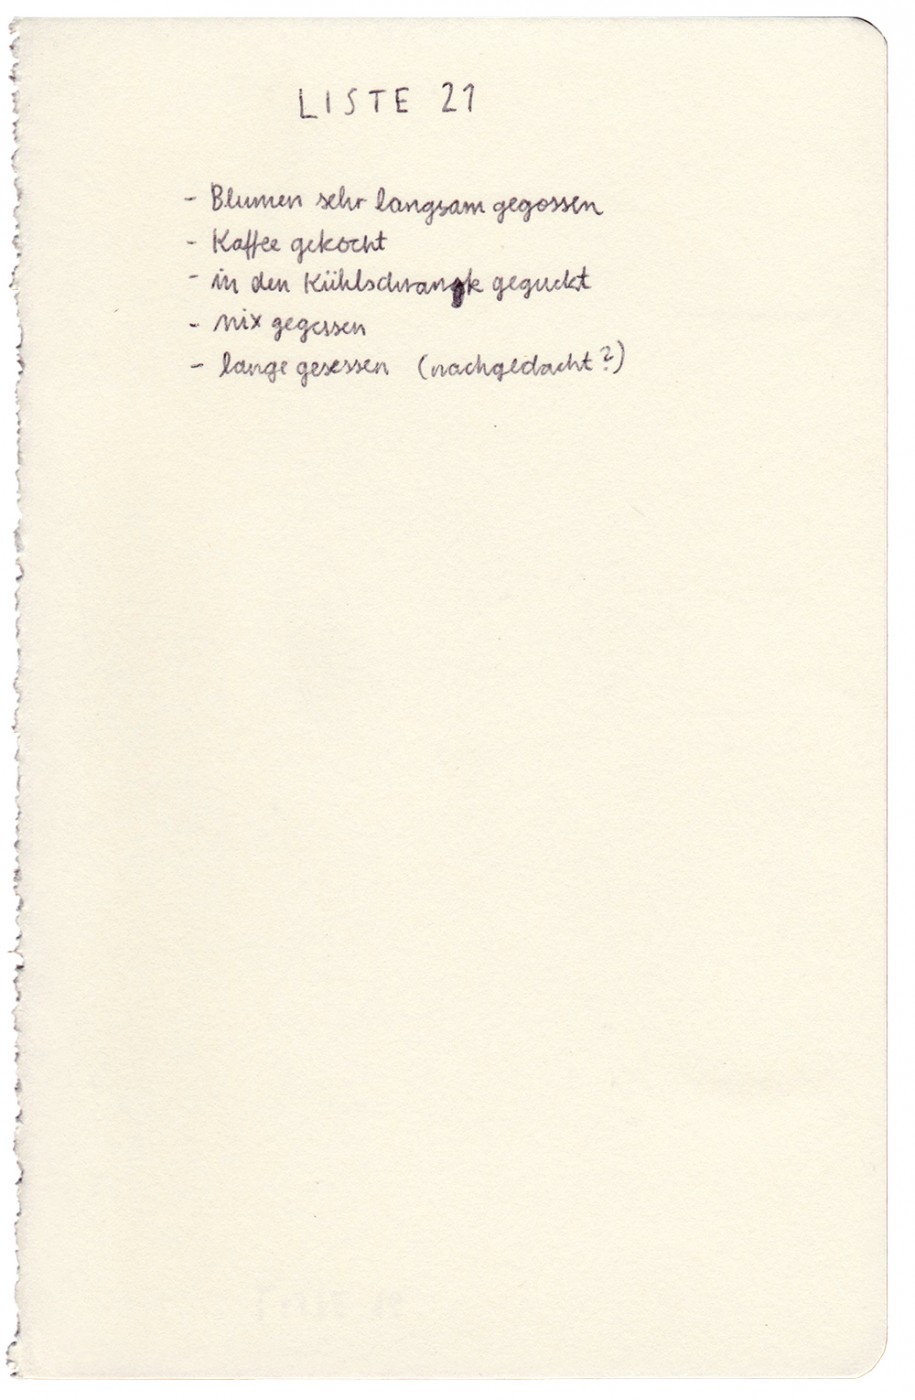 LISTE 21
- Blumen sehr langsam gegossen
- Kaffee gekocht
- in den Kühlschrank geguckt
- nix gegessen
- lange gesessen (nachgedacht?)